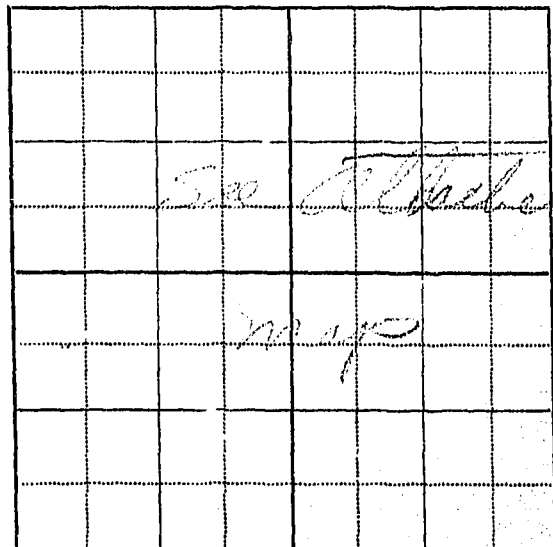 See Attache
map